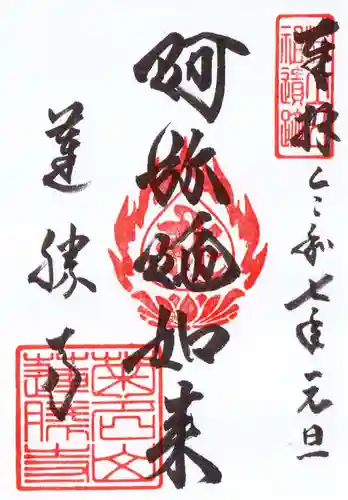 奉拝
令和七年元旦
阿弥陀如来
蓮勝寺
菊名山
蓮勝寺